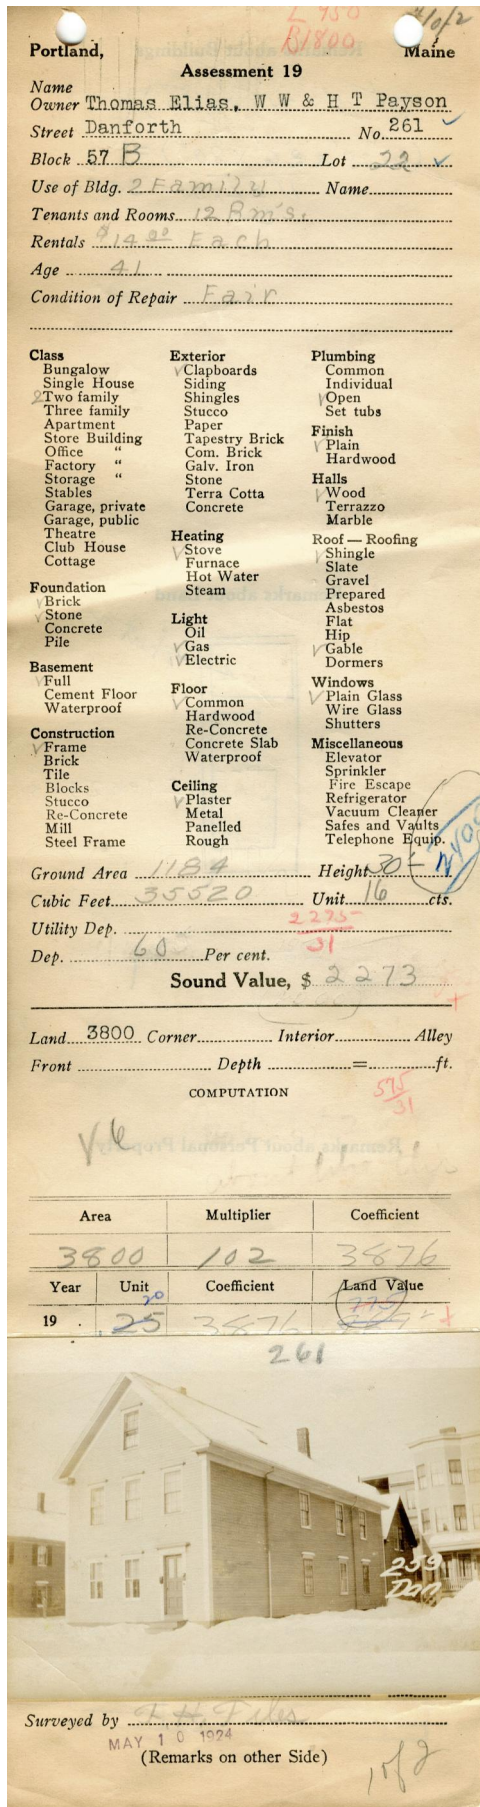 L 950
B1800
1 of 2
Portland, Maine
Assessment 19
Name
Owner Thomas Elias, W W & H T Payson
Street Danforth No. 261
Block 57 B Lot 22
Use of Bldg. 2 Family Name
Tenants and Rooms 12 Rm's.
Rentals $14.00 Each
Age 41
Condition of Repair Fair
Class
Bungalow
Single House
2 Two family
Three family
Apartment
Store Building
Office "
Factory "
Storage "
Stables
Garage, private
Garage, public
Theatre
Club House
Cottage
Foundation
√ Brick
√ Stone
Concrete
Pile
Basement
√ Full
Cement Floor
Waterproof
Construction
√ Frame
Brick
Tile
Blocks
Stucco
Re-Concrete
Mill
Steel Frame
Exterior
√ Clapboards
Siding
Shingles
Stucco
Paper
Tapestry Brick
Com. Brick
Galv. Iron
Stone
Terra Cotta
Concrete
Heating
√ Stove
Furnace
Hot Water
Steam
Light
Oil
√ Gas
√ Electric
Floor
√ Common
Hardwood
Re-Concrete
Concrete Slab
Waterproof
Ceiling
√ Plaster
Metal
Panelled
Rough
Plumbing
Common
Individual
√ Open
Set tubs
Finish
√ Plain
Hardwood
Halls
√ Wood
Terrazzo
Marble
Roof — Roofing
√ Shingle
Slate
Gravel
Prepared
Asbestos
Flat
Hip
√ Gable
Dormers
Windows
√ Plain Glass
Wire Glass
Shutters
Miscellaneous
Elevator
Sprinkler
Fire Escape
Refrigerator
Vacuum Cleaner
Safes and Vaults
Telephone Equip.
Ground Area 1184 Height 30
Cubic Feet 35520 Unit 16 cts.
Utility Dep. 2275
31
Dep. 60 Per cent.
Sound Value, $ 2273
Land 3800 Corner Interior Alley
Front Depth = ft.
COMPUTATION
575
31
√6
Area Multiplier Coefficient
3800 102 3876
Year Unit Coefficient Land Value
20 775
19 25 3876
261
259
Dan
Surveyed by F. H. Files
MAY 10 1924
(Remarks on other Side)
1 of 2